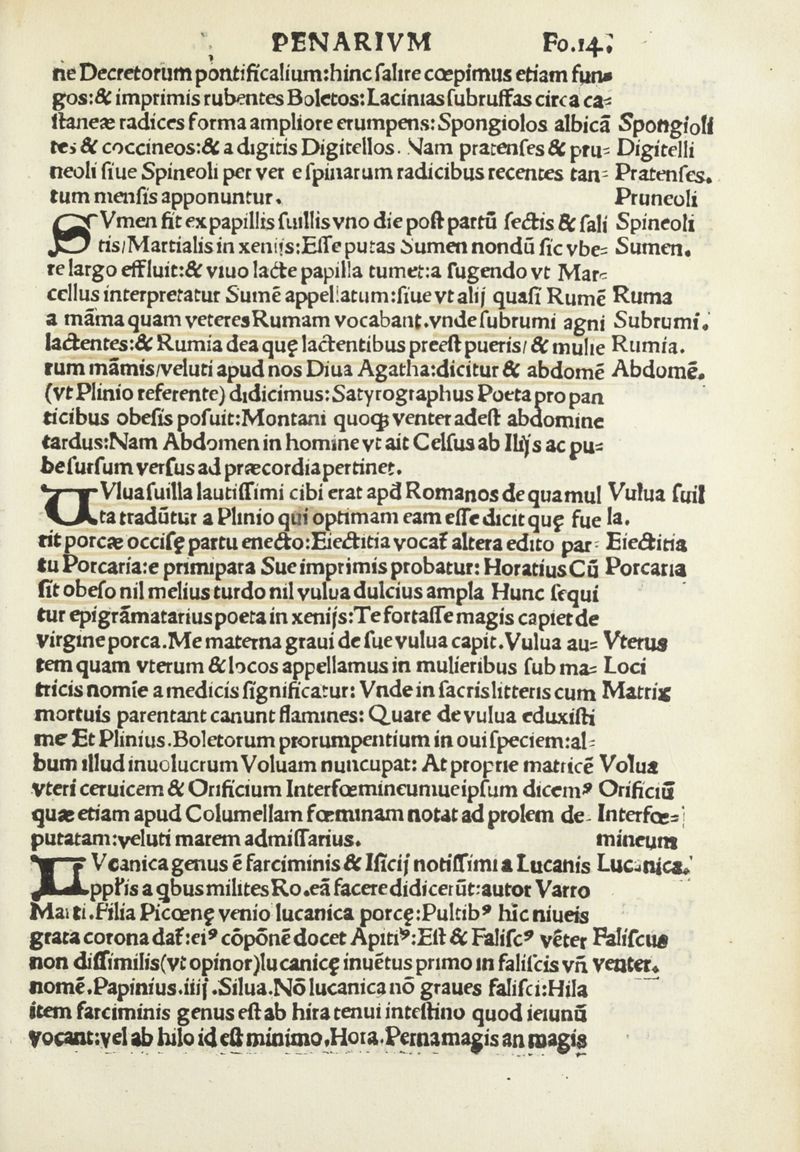 PENARIVM Fo.14.
ne Decretorum pontificalium:hinc ſalire cœpimus etiam fun-
gos:& imprimis rubentes Boletos:Lacinias ſubruffas circa ca-
ſtaneæ radices forma ampliore erumpens:Spongiolos albicã Spongioli
tes & coccineos:& a digitis Digitellos. Nam pratenſes & pru- Digitelli
neoli ſiue Spineoli per ver e ſpinarum radicibus recentes tan- Pratenſes.
tum menſis apponuntur. Pruneoli
SVmen fit ex papillis ſuillis vno die poſt partũ ſectis & ſali Spineoli
tis/Martialis in xenijs:Eſſe putas Sumen nondũ ſic vbe- Sumen.
re largo effluit:& viuo lacte papilla tumet:a ſugendo vt Mar-
cellus interpretatur Sumẽ appellatum:ſiue vt alij quaſi Rumẽ Ruma
a mãma quam veteres Rumam vocabant.vnde ſubrumi agni Subrumi.
lactentes:& Rumia dea quę lactentibus preeſt pueris/ & mulie Rumia.
rum mãmis/veluti apud nos Diua Agatha:dicitur & abdomẽ Abdomẽ.
(vt Plinio referente) didicimus:Satyrographus Poeta pro pan
ticibus obeſis poſuit:Montani quoqꝫ venter adeſt abdomine
tardus:Nam Abdomen in homine vt ait Celſus ab Ilijs ac pu-
be ſurſum verſus ad præcordia pertinet.
VVlua ſuilla lautiſſimi cibi erat apđ Romanos de qua mul Vulua ſuil
ta tradũtur a Plinio qui optimam eam eſſe dicit quę fue la.
rit porcæ occiſę partu enecto:Eiectitia vocať altera edito par- Eiectitia
tu Porcaria:e primipara Sue imprimis probatur: Horatius Cũ Porcaria
ſit obeſo nil melius turdo nil vulua dulcius ampla Hunc ſequi
tur epigrãmatarius poeta in xenijs:Te fortaſſe magis capiet de
virgine porca.Me materna graui de ſue vulua capit.Vulua au- Vterus
tem quam vterum & locos appellamus in mulieribus ſub ma- Loci
tricis nomie a medicis ſignificatur: Vnde in ſacris litteris cum Matrix
mortuis parentant canunt flamines: Quare de vulua eduxiſti
me Et Plinius.Boletorum prorumpentium in oui ſpeciem:al-
bum illud inuolucrum Voluam nuncupat: At proprie matricẽ Volua
vteri ceruicem & Orificium Interfœmineumue ipſum dicemꝰ Orificiũ
quæ etiam apud Columellam fœminam notat ad prolem de- Interfœ-
putatam:veluti marem admiſſarius. mineum
LVcanica genus ẽ farciminis & Iſicij notiſſimi a Lucanis Lucanica.
ppľis a qbus milites Ro.eã facere didicerũt:autor Varro
Marti.Filia Picœnę venio lucanica porcę:Pultibꝰ hic niueis
grata corona dať:eiꝰ cõpõnẽ docet Apitiꝰ:Eſt & Faliſcꝰ vẽter Faliſcus
non diſſimilis(vt opinor)lucanicę inuẽtus primo in faliſcis vñ venter.
nomẽ.Papinius.iiij.Silua.Nõ lucanica nõ graues faliſci:Hila
item farciminis genus eſt ab hira tenui inteſtino quod ieiunũ
vocant:vel ab hilo id eſt minimo.Hora.Perna magis an magis